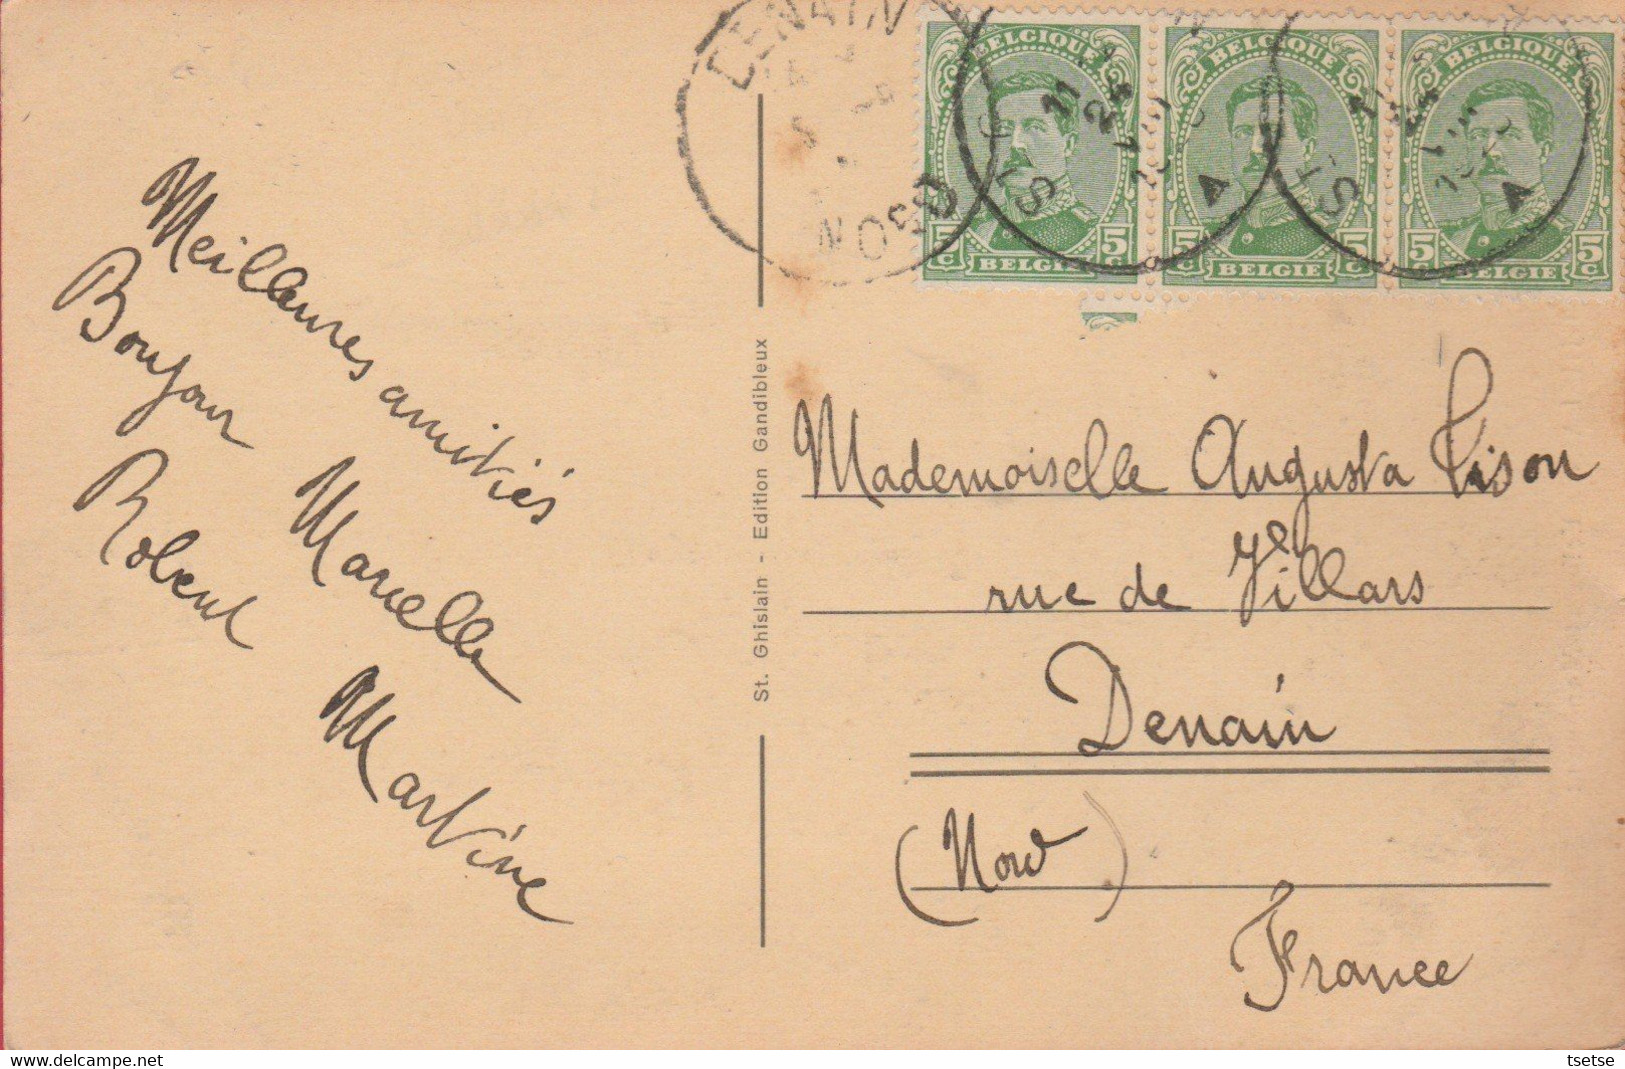 DENAIN
NORD
BELGIQUE
5c
5c
BELGIE
BELGIQUE
5c
5c
BELGIE
BELGIQUE
5c
5c
BELGIE
Meilleures amitiés
Bonjour Marcelle
Robert Martine
St. Ghislain - Edition Gandibleux
Mademoiselle Augusta
rue de Villars
Denain
(Nord)
France
tsetse